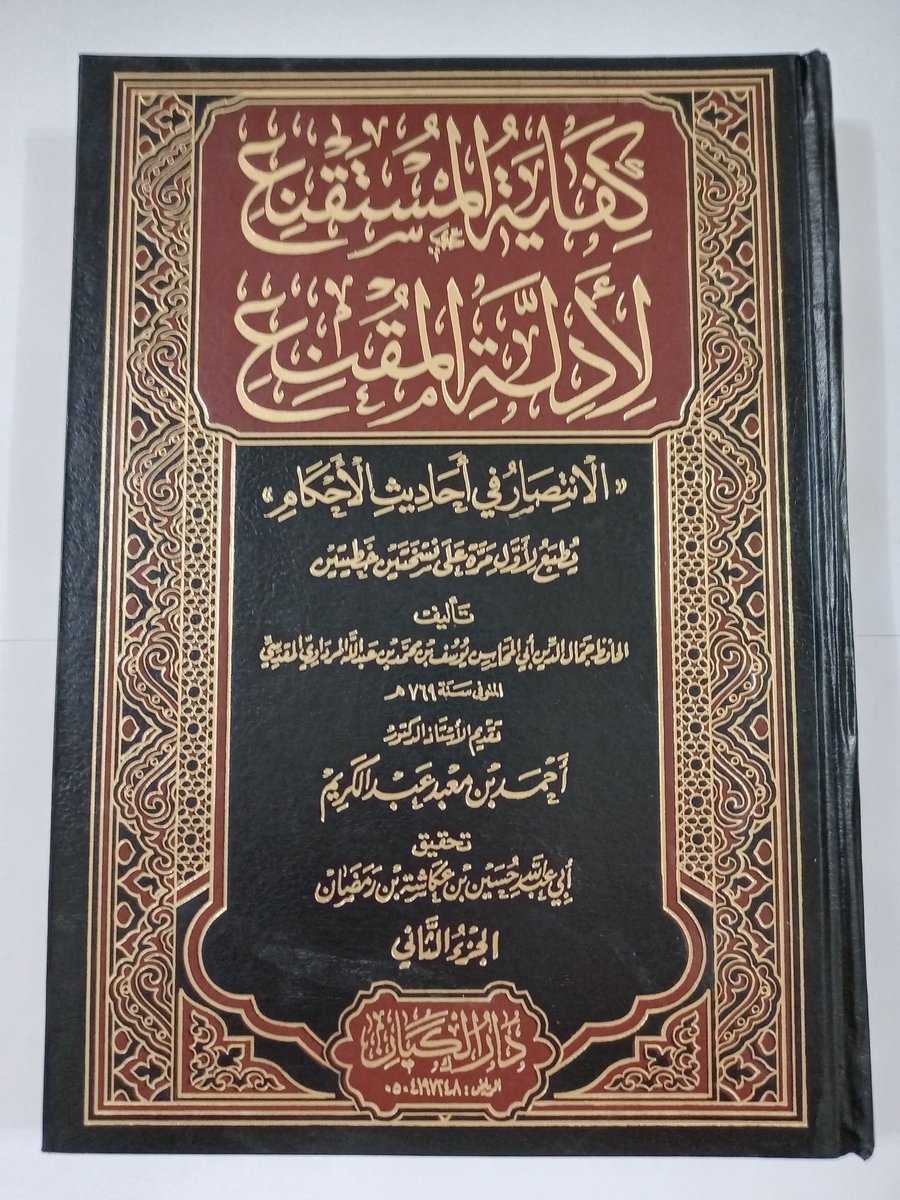 كِفَايَةُ المُسْتَقْنِعِ
لِأَدِلَّةِ المُقْنِعِ
«الِانْتِصَارُ فِي أَحَادِيثِ الأَحْكَامِ»
يُطْبَعُ لِأَوَّلِ مَرَّةٍ عَلَى نُسْخَتَيْنِ خَطِّيَّتَيْنِ
تَأليف
الحافظ جمال الدين أبي المحاسن يوسف بن محمد بن عبد الله المرداوي المقدسي
المتوفى سنة ٧٦٩ هـ
تقديم الأستاذ الدكتور
أَحْمَد بْن مَعْبَد عَبْد الكَرِيم
تحقيق
أَبِي عَبْدِ اللَّهِ حُسَيْن بْن عُكَاشَة بْن رَمَضَان
الجُزْءُ الثَّانِي
دَارُ الكَيَان
الرياض: ٠٥٠٤١٩٧٢٤٨